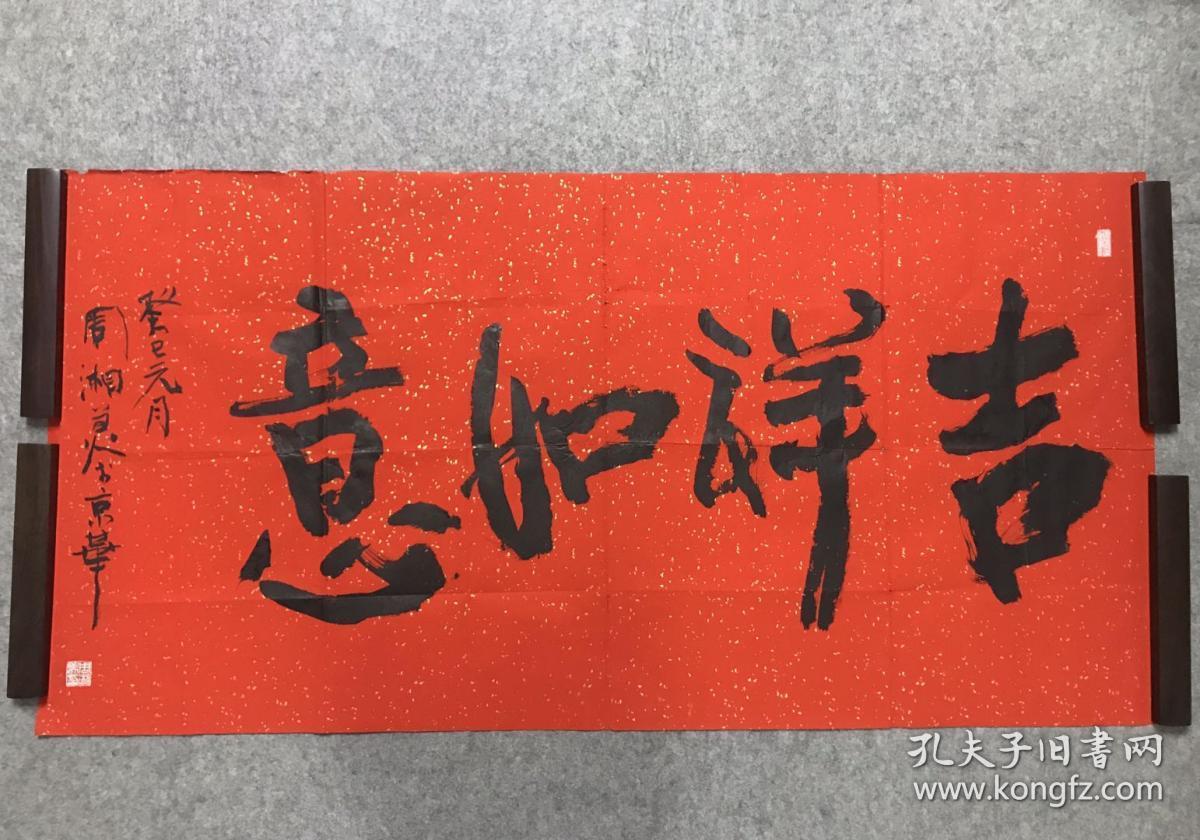 吉祥如意
癸巳元月
周湘美书京华
孔夫子旧书网
www.kongfz.com